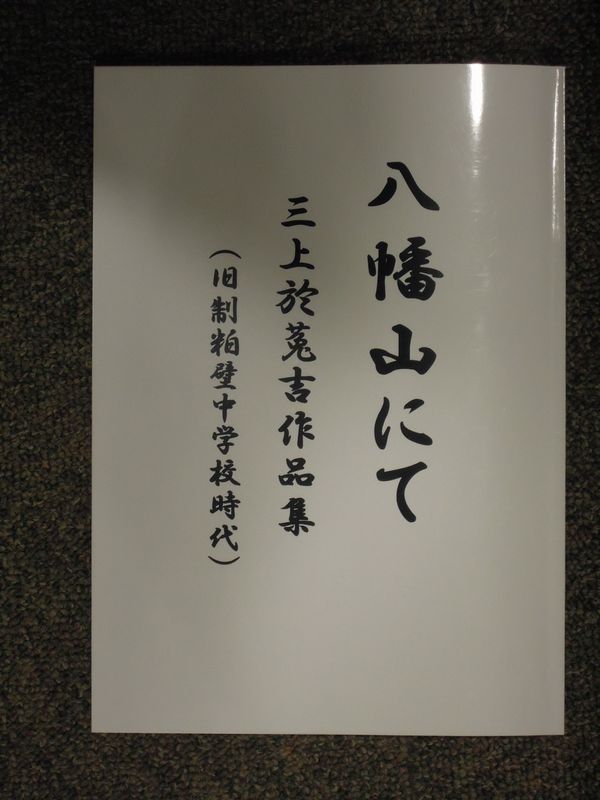 八幡山にて
三上於菟吉作品集
（旧制粕壁中学校時代）